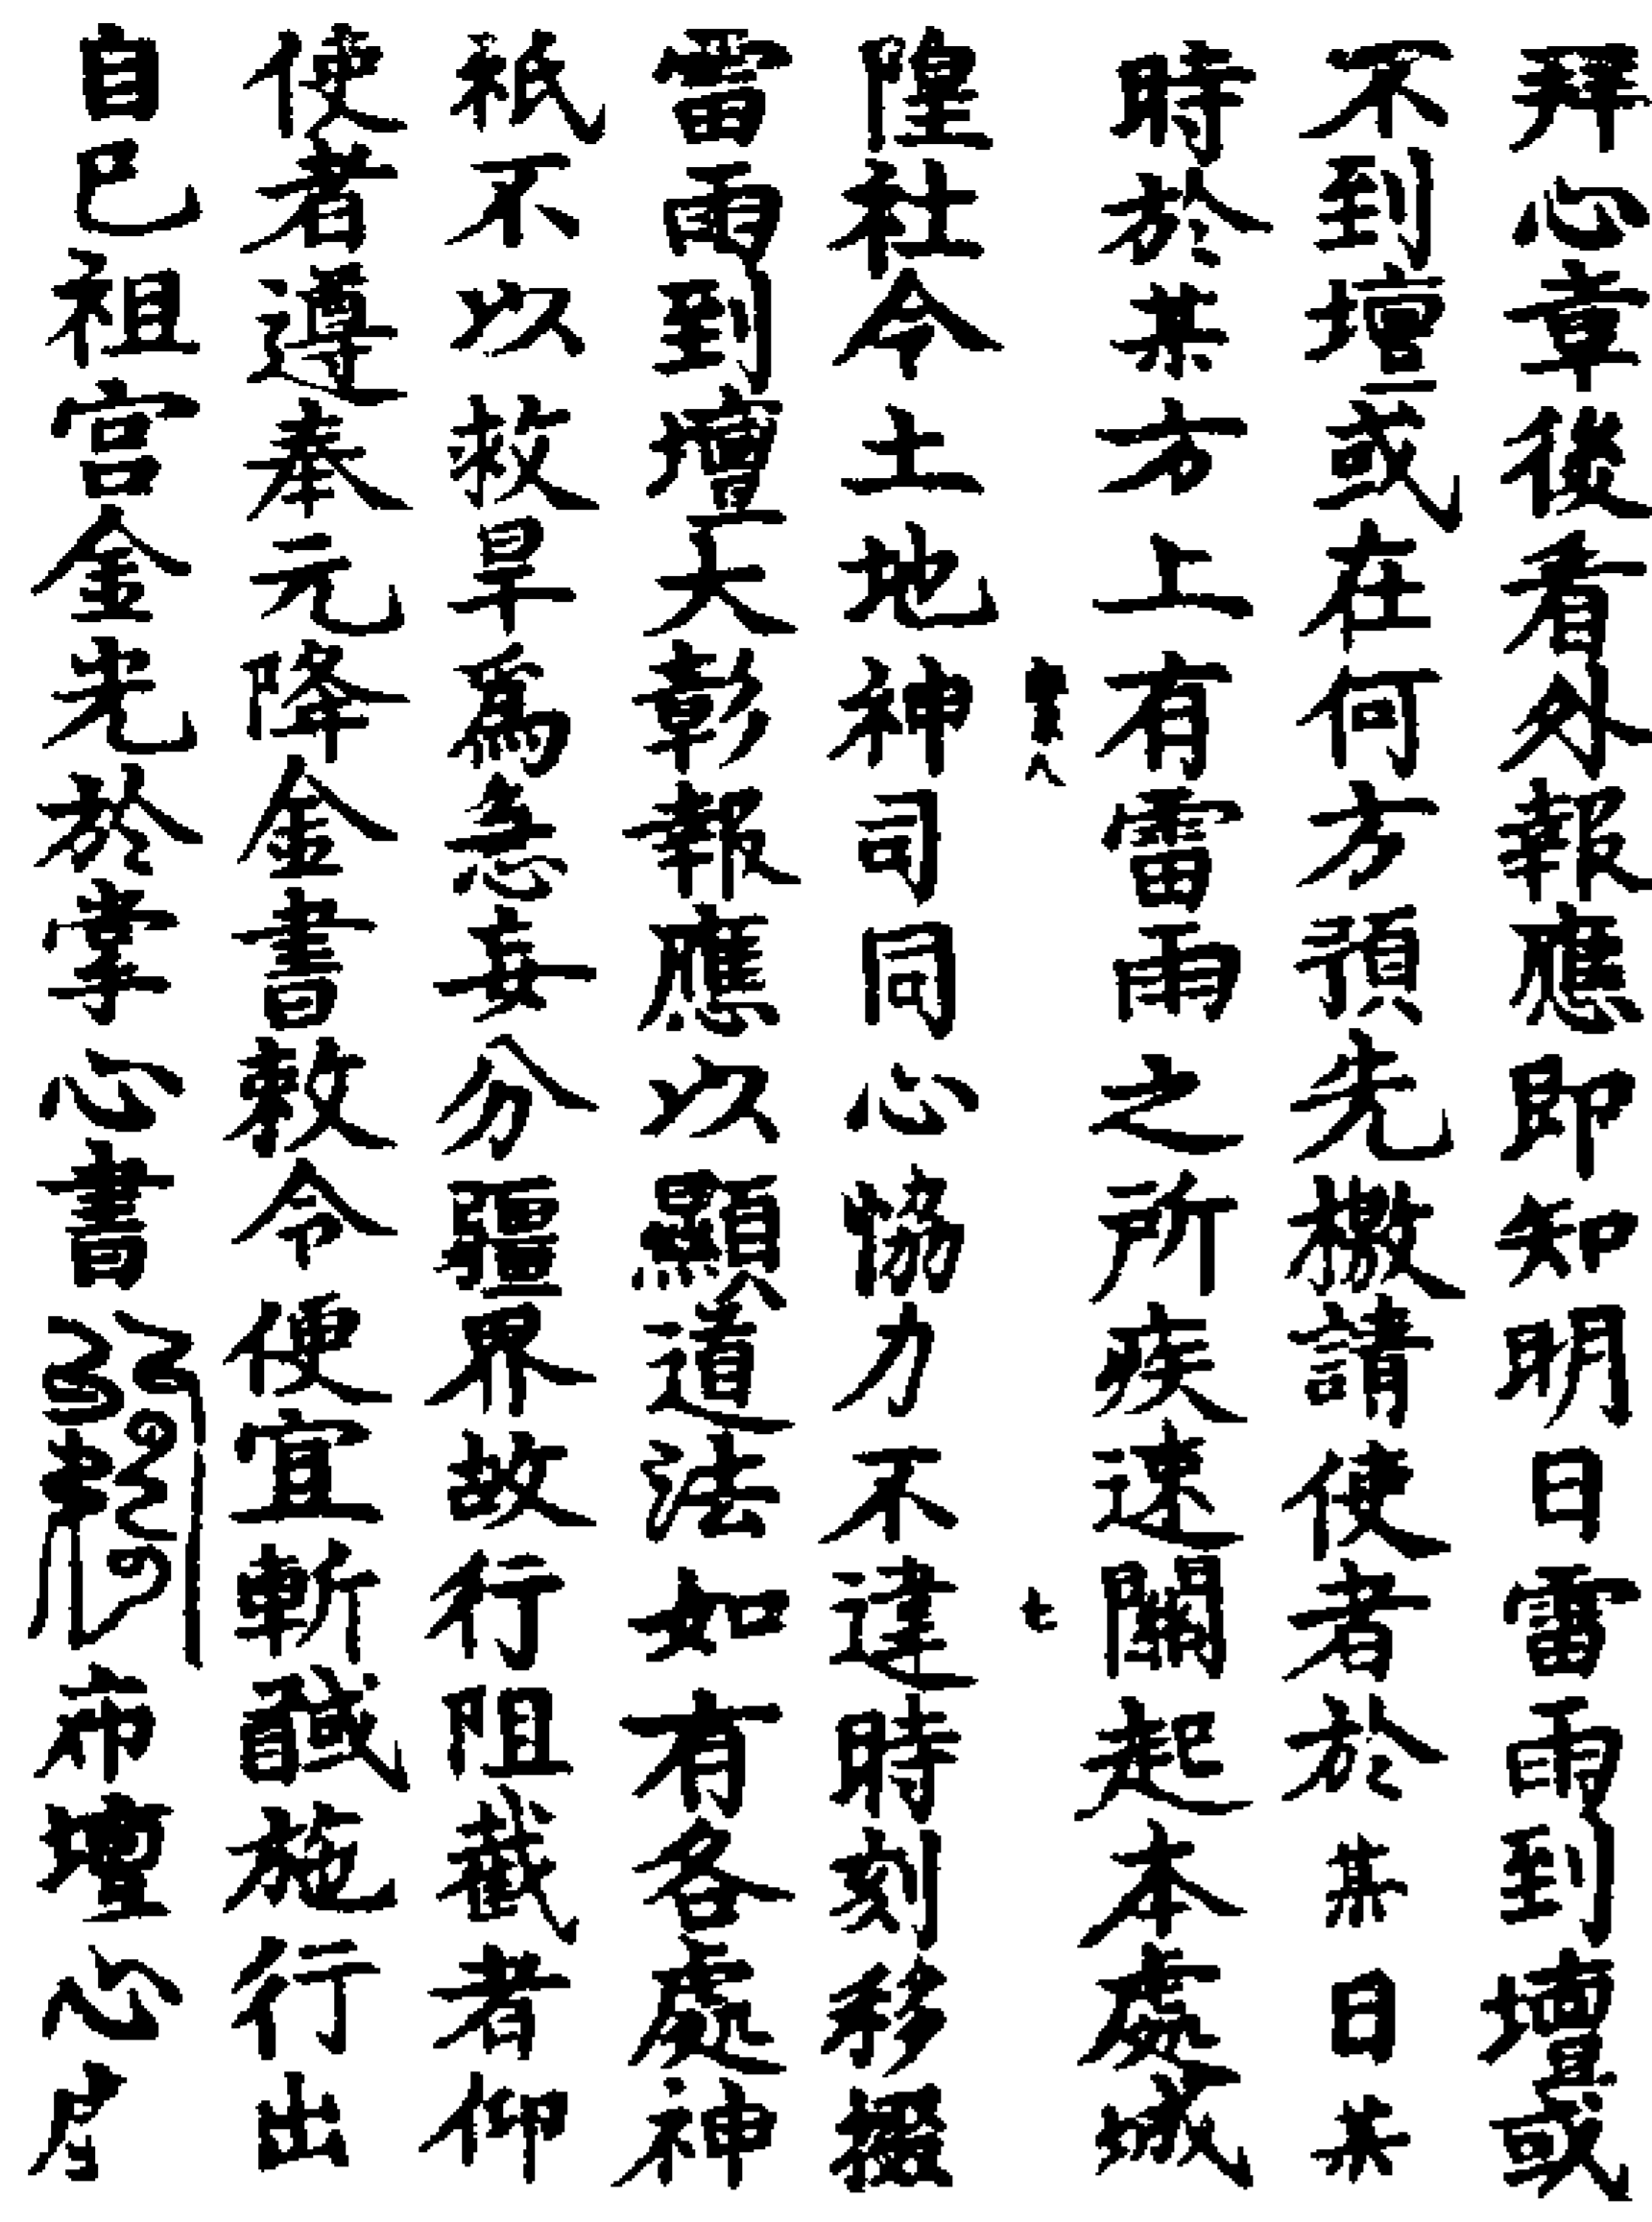 拜心章後看外報應即知明日雷雨到壇或
不到壇或在何方預先檄請使者於某日某
時於某方上有雷雨之所疾速關起本處城
八 七
隍社令土地神司同心協力不違時刻移掇
雷雨到壇大彰報應以顯道法如有各處神
祇不以救旱爲急妄分疆界故行阻截者仰
使者遵奉元降金書敕令便宜斬馘施行出
自己祖宮金光於掌心書 布壇心